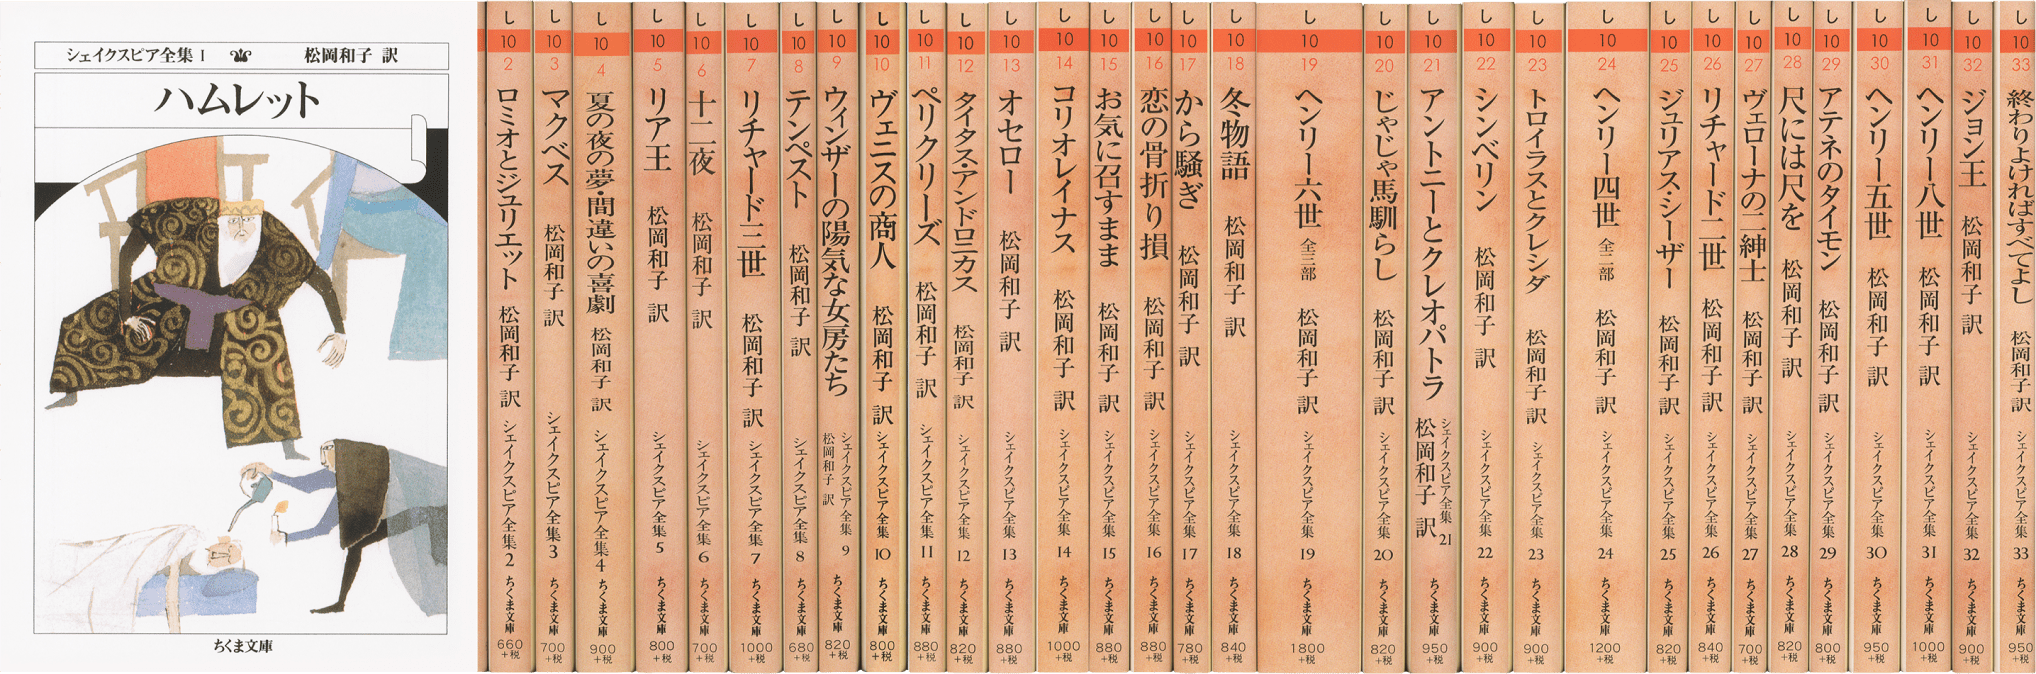 シェイクスピア全集 I 松岡和子 訳
ハムレット
ちくま文庫
し 10 2 ロミオとジュリエット 松岡和子 訳 シェイクスピア全集 2 ちくま文庫 660 +税
し 10 3 マクベス 松岡和子 訳 シェイクスピア全集 3 ちくま文庫 700 +税
し 10 4 夏の夜の夢・間違いの喜劇 松岡和子 訳 シェイクスピア全集 4 ちくま文庫 900 +税
し 10 5 リア王 松岡和子 訳 シェイクスピア全集 5 ちくま文庫 800 +税
し 10 6 十二夜 松岡和子 訳 シェイクスピア全集 6 ちくま文庫 700 +税
し 10 7 リチャード三世 松岡和子 訳 シェイクスピア全集 7 ちくま文庫 1000 +税
し 10 8 テンペスト 松岡和子 訳 シェイクスピア全集 8 ちくま文庫 680 +税
し 10 9 ウィンザーの陽気な女房たち シェイクスピア全集 9 松岡和子 訳 ちくま文庫 820 +税
し 10 10 ヴェニスの商人 松岡和子 訳 シェイクスピア全集 10 ちくま文庫 800 +税
し 10 11 ペリクリーズ 松岡和子 訳 シェイクスピア全集 11 ちくま文庫 880 +税
し 10 12 タイタス・アンドロニカス 松岡和子 訳 シェイクスピア全集 12 ちくま文庫 820 +税
し 10 13 オセロー 松岡和子 訳 シェイクスピア全集 13 ちくま文庫 880 +税
し 10 14 コリオレイナス 松岡和子 訳 シェイクスピア全集 14 ちくま文庫 1000 +税
し 10 15 お気に召すまま 松岡和子 訳 シェイクスピア全集 15 ちくま文庫 880 +税
し 10 16 恋の骨折り損 松岡和子 訳 シェイクスピア全集 16 ちくま文庫 880 +税
し 10 17 から騒ぎ 松岡和子 訳 シェイクスピア全集 17 ちくま文庫 780 +税
し 10 18 冬物語 松岡和子 訳 シェイクスピア全集 18 ちくま文庫 840 +税
し 10 19 ヘンリー六世 全三部 松岡和子 訳 シェイクスピア全集 19 ちくま文庫 1800 +税
し 10 20 じゃじゃ馬馴らし 松岡和子 訳 シェイクスピア全集 20 ちくま文庫 820 +税
し 10 21 アントニーとクレオパトラ シェイクスピア全集 21 松岡和子 訳 ちくま文庫 950 +税
し 10 22 シンベリン 松岡和子 訳 シェイクスピア全集 22 ちくま文庫 900 +税
し 10 23 トロイラスとクレシダ 松岡和子 訳 シェイクスピア全集 23 ちくま文庫 900 +税
し 10 24 ヘンリー四世 全二部 松岡和子 訳 シェイクスピア全集 24 ちくま文庫 1200 +税
し 10 25 ジュリアス・シーザー 松岡和子 訳 シェイクスピア全集 25 ちくま文庫 820 +税
し 10 26 リチャード二世 松岡和子 訳 シェイクスピア全集 26 ちくま文庫 840 +税
し 10 27 ヴェローナの二紳士 松岡和子 訳 シェイクスピア全集 27 ちくま文庫 700 +税
し 10 28 尺には尺を 松岡和子 訳 シェイクスピア全集 28 ちくま文庫 820 +税
し 10 29 アテネのタイモン 松岡和子 訳 シェイクスピア全集 29 ちくま文庫 800 +税
し 10 30 ヘンリー五世 松岡和子 訳 シェイクスピア全集 30 ちくま文庫 950 +税
し 10 31 ヘンリー八世 松岡和子 訳 シェイクスピア全集 31 ちくま文庫 1000 +税
し 10 32 ジョン王 松岡和子 訳 シェイクスピア全集 32 ちくま文庫 900 +税
し 10 33 終わりよければすべてよし 松岡和子 訳 シェイクスピア全集 33 ちくま文庫 950 +税